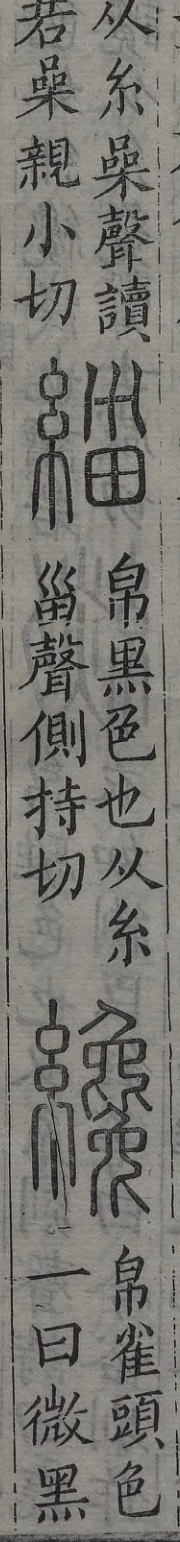 从糸喿聲讀
若喿親小切
緇
帛黑色也从糸
甾聲側持切
纔
帛雀頭色
一曰微黑